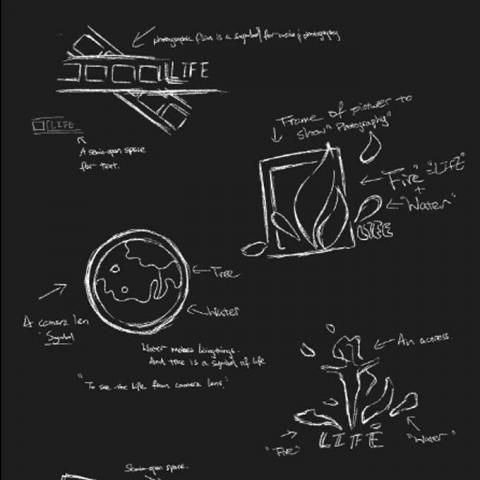 photographic film is a symbol for movie & photography
LIFE
LIFE
A semi-open space
for text.
Frame of picture to
show "Photography"
"Fire" "LIFE"
+
"Water"
LIFE
Tree
Water
A camera len
Symbol
Water
And tree is a symbol of life
"To see the life from camera lens."
An actress.
"Fire"
LIFE
"Water"
Semi-open space.